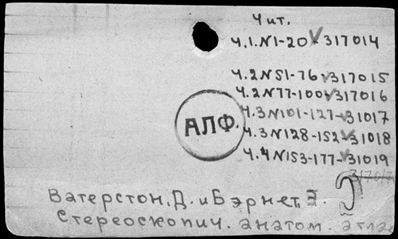 Чит.
Ч.1.N1-20 V 317014
Ч.2N51-76 V 317015
Ч.2N77-100 V 317016
Ч.3N101-127 V 31017
Ч.3N128-152 V 31018
Ч.4N153-177 V 31019
АЛФ.
Ватерстон, Д. и Бэрнет, Э.
Стереоскопич. анатом. атлас